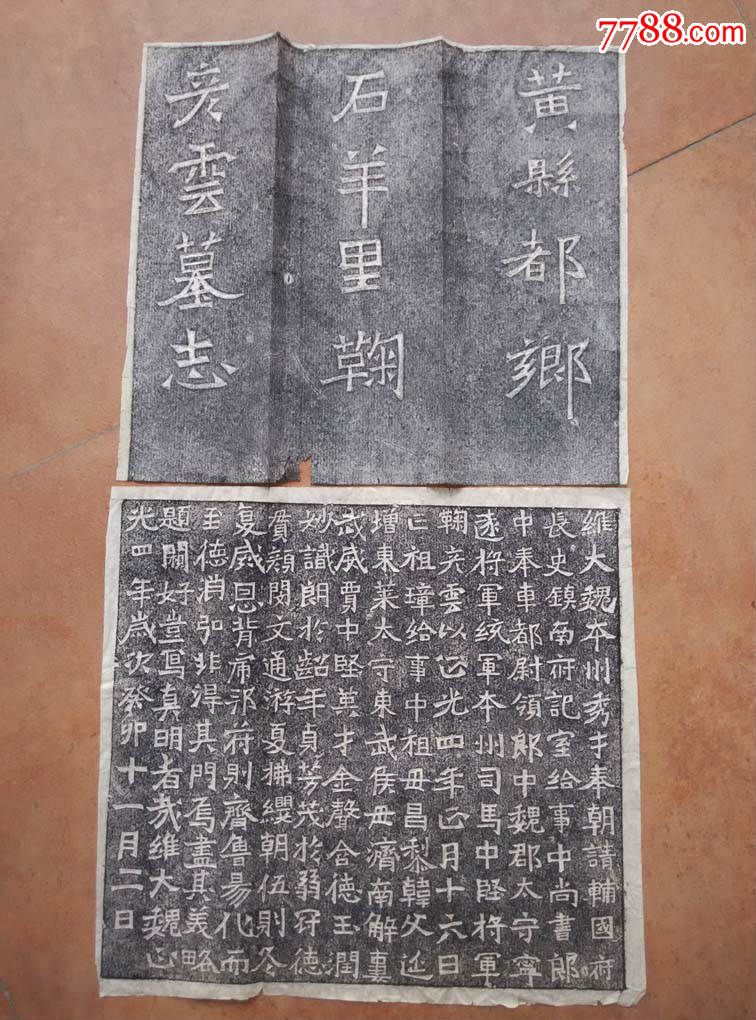 7788.com
黄縣都鄉
石羊里鞠
彦雲墓志
維大魏夲州秀才奉朝請輔國府
長史鎮南府記室給事中尚書郎
中奉車都尉領郎中魏郡太守寧
遠将軍統軍夲州司馬中堅将軍
鞠彦雲以正光四年正月十六日
亡祖璋給事中祖毋昌黎韓父延
增東萊太守東武侯毋濟南解妻
武威賈中堅英才金聲含德玉潤
妙識朗扵齠年身芳茂扵弱冠德
貫顔閔文通游夏拂纓朝伍則冬
夏威恩背虎邦府則齊魯易化而
至德消弘非淂其門焉盡其義略
題關好豈寫真明者㢤維大魏正
光四年歳次癸卯十一月二日